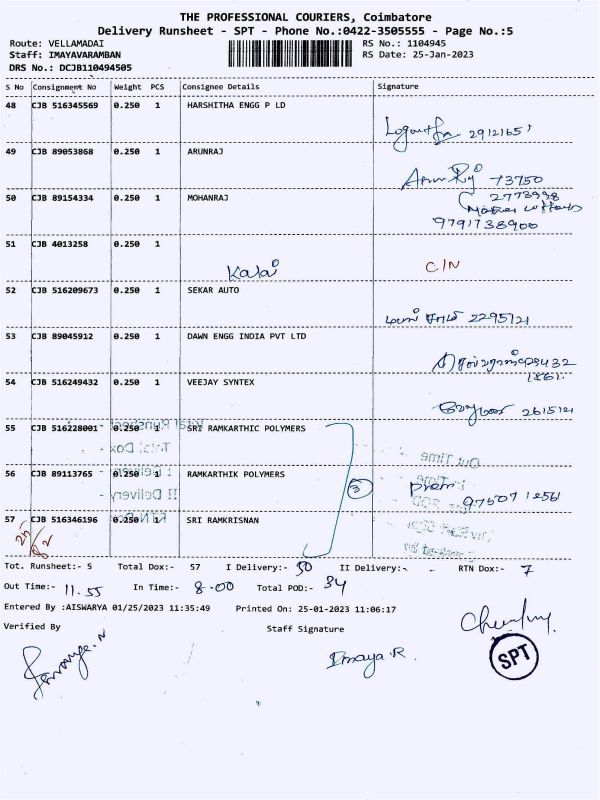 THE PROFESSIONAL COURIERS, Coimbatore
Delivery Runsheet - SPT - Phone No.:0422-3505555 - Page No.:5
Route: VELLAMADAI RS No.: 1104945
Staff: IMAYAVARAMBAN RS Date: 25-Jan-2023
DRS No.: DCJB110494505
S No Consignment No Weight PCS Consignee Details Signature
48 CJB 516345569 0.250 1 HARSHITHA ENGG P LD
49 CJB 89053868 0.250 1 ARUNRAJ
73750
50 CJB 89154334 0.250 1 MOHANRAJ 2773998
9791738900
51 CJB 4013258 0.250 1
Kalai C/N
52 CJB 516209673 0.250 1 SEKAR AUTO
2295121
53 CJB 89045912 0.250 1 DAWN ENGG INDIA PVT LTD
54 CJB 516249432 0.250 1 VEEJAY SYNTEX
2615121
55 CJB 516228001 0.250 1 SRI RAMKARTHIC POLYMERS
Total Runsheet
Total Dox
Out Time
56 CJB 89113765 0.250 1 RAMKARTHIK POLYMERS
I Delivery
II Delivery
3 prem
57 CJB 516346196 0.250 1 SRI RAMKRISNAN
Tot. Runsheet:- 5 Total Dox:- 57 I Delivery:- 50 II Delivery:- RTN Dox:- 7
Out Time:- 11.55 In Time:- 8-00 Total POD:- 34
Entered By :AISWARYA 01/25/2023 11:35:49 Printed On: 25-01-2023 11:06:17
Verified By Staff Signature
Imaya.R
SPT